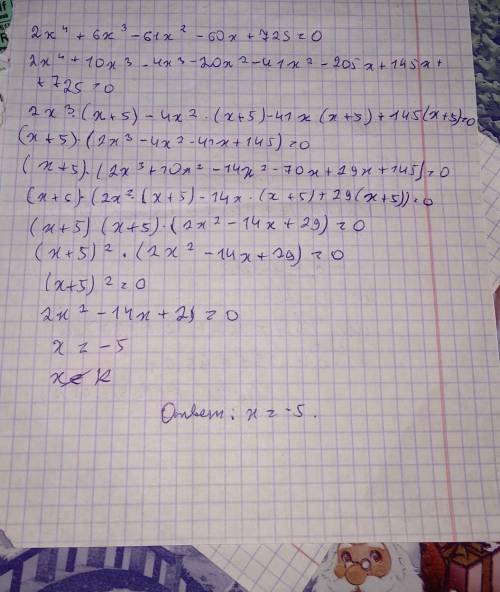 2x⁴ + 6x³ - 61x² - 60x + 725 = 0
2x⁴ + 10x³ - 4x³ - 20x² - 41x² - 205x + 145x +
+ 725 = 0
2x³·(x+5) - 4x²·(x+5) - 41x(x+5) + 145(x+5) = 0
(x+5)·(2x³ - 4x² - 41x + 145) = 0
(x+5)·(2x³ + 10x² - 14x² - 70x + 29x + 145) = 0
(x+5)·(2x²·(x+5) - 14x·(x+5) + 29(x+5)) = 0
(x+5)(x+5)·(2x² - 14x + 29) = 0
(x+5)²·(2x² - 14x + 29) = 0
(x+5)² = 0
2x² - 14x + 29 = 0
x = -5
x ∉ R
Ответ: x = -5.